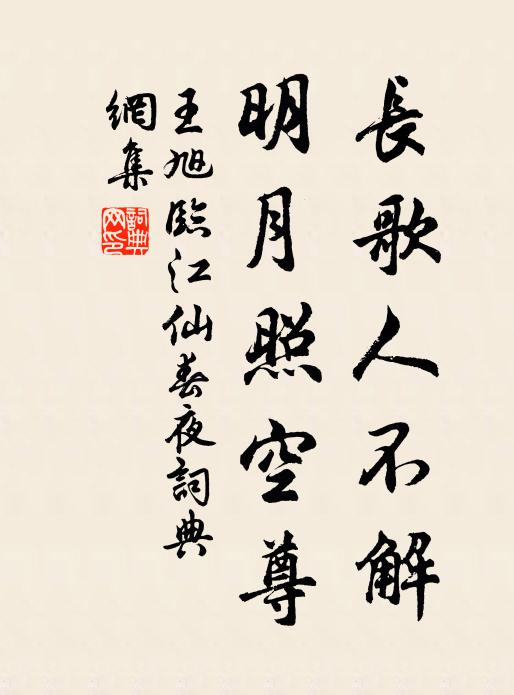 長歌人不解
明月照空尊
王旭臨江仙春夜詞典
網集
詞典網印